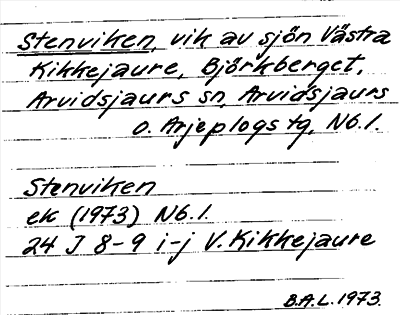 Stenviken, vik av sjön Västra
Kikkejaure, Björkberget,
Arvidsjaurs sn, Arvidsjaurs
o. Arjeplogs tg, Nb.l.
Stenviken
ek (1973) Nb.l.
24 J 8-9 i-j V. Kikkejaure
B.A.L. 1973.